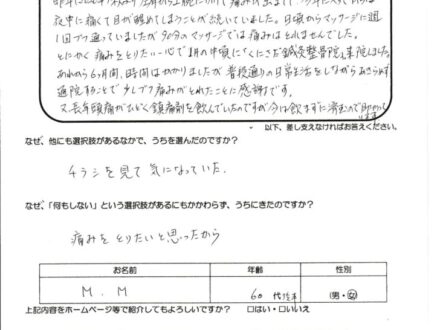 夜中に痛くて目が醒めてしまうことが続いていました。日頃からマッサージに週
1回ずつ通っていましたが90分のマッサージでは痛みはとれませんでした。
とにかく痛みをとりたい一心で1月の中頃に くにさだ鍼灸整骨院に来院しました。
あれから6ヶ月間、時間はかかりましたが普段通りの日常生活をしながらあきらめず
通院することで 痛みがとれたことに感謝です。
又、長年頭痛がひどく鎮痛剤を飲んでいたのですが今は飲まずに済むので
以下、差し支えなければお答えください。
なぜ、他にも選択肢があるなかで、うちを選んだのですか?
チラシを見て気になっていた。
なぜ、「何もしない」という選択肢があるにもかかわらず、うちにきたのですか?
痛みをとりたいと思ったから
お名前 年齢 性別
M.M 60代 (男・女)
上記内容をホームページ等で紹介してもよろしいですか? □はい・□いいえ